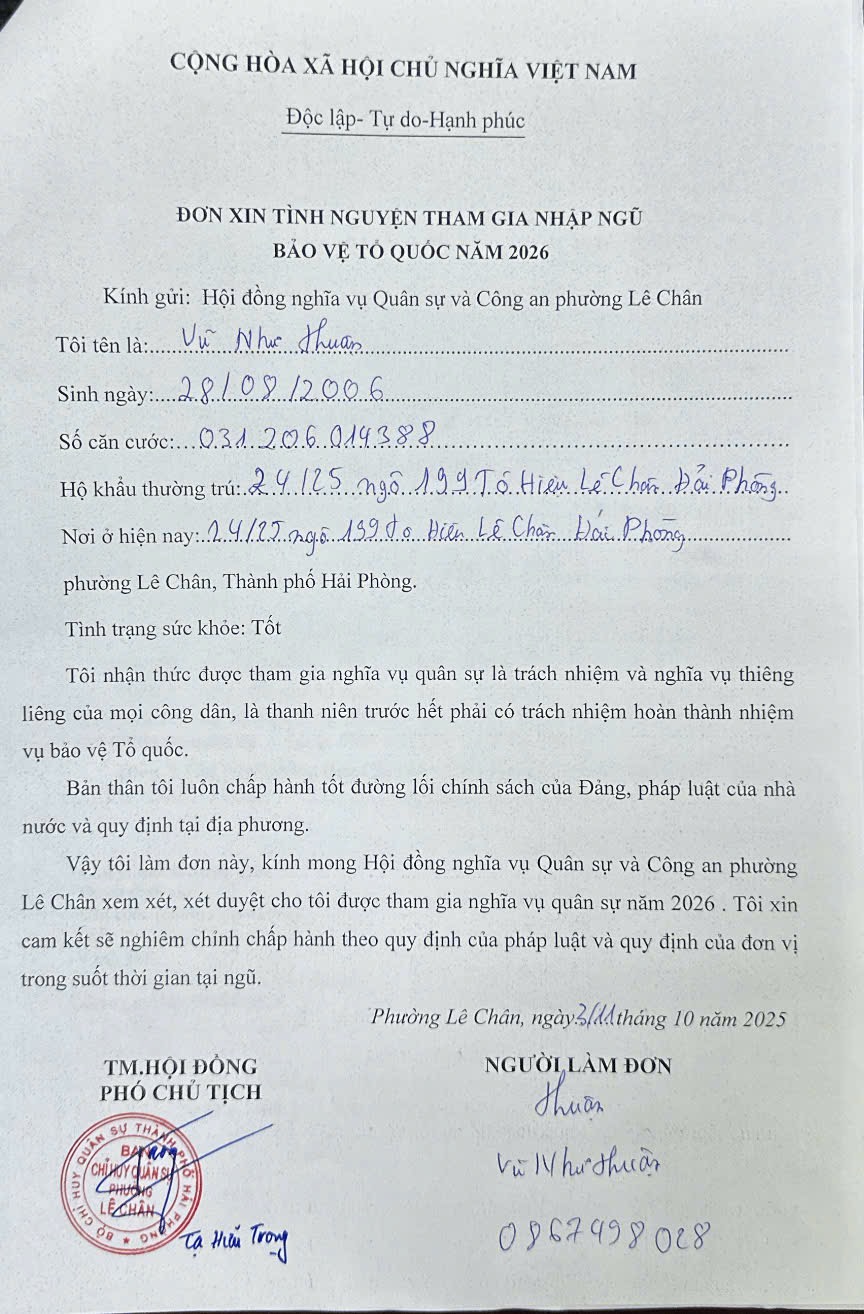 CỘNG HÒA XÃ HỘI CHỦ NGHĨA VIỆT NAM
Độc lập- Tự do-Hạnh phúc
ĐƠN XIN TÌNH NGUYỆN THAM GIA NHẬP NGŨ
BẢO VỆ TỔ QUỐC NĂM 2026
Kính gửi: Hội đồng nghĩa vụ Quân sự và Công an phường Lê Chân
Tôi tên là: Vũ Như Thuần
Sinh ngày: 28/08/2006
Số căn cước: 031 206 014388
Hộ khẩu thường trú: 24/25 ngõ 199 Tô Hiệu Lê Chân Hải Phòng
Nơi ở hiện nay: 24/25 ngõ 199 Tô Hiệu Lê Chân Hải Phòng
phường Lê Chân, Thành phố Hải Phòng.
Tình trạng sức khỏe: Tốt
Tôi nhận thức được tham gia nghĩa vụ quân sự là trách nhiệm và nghĩa vụ thiêng
liêng của mọi công dân, là thanh niên trước hết phải có trách nhiệm hoàn thành nhiệm
vụ bảo vệ Tổ quốc.
Bản thân tôi luôn chấp hành tốt đường lối chính sách của Đảng, pháp luật của nhà
nước và quy định tại địa phương.
Vậy tôi làm đơn này, kính mong Hội đồng nghĩa vụ Quân sự và Công an phường
Lê Chân xem xét, xét duyệt cho tôi được tham gia nghĩa vụ quân sự năm 2026 . Tôi xin
cam kết sẽ nghiêm chỉnh chấp hành theo quy định của pháp luật và quy định của đơn vị
trong suốt thời gian tại ngũ.
Phường Lê Chân, ngày 3/11 tháng 10 năm 2025
TM.HỘI ĐỒNG
PHÓ CHỦ TỊCH
NGƯỜI LÀM ĐƠN
Thuần
Vũ Như Thuần
0867498028
BỘ CHỈ HUY QUÂN SỰ THÀNH PHỐ HẢI PHÒNG
BAN
CHỈ HUY QUÂN SỰ
PHƯỜNG
LÊ CHÂN
Tạ Hiếu Trọng